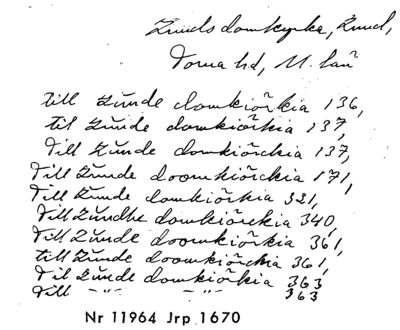 Lunds domkyrka, Lund,
Torna hd, M. län
till Lunde domkiörkia 136,
til Lunde domkiörkia 137,
Till Lunde domkiörckia 137,
Till Lunde doomkiörckia 171,
Till Lunde domkiörkia 321,
Till Lundhe domkiörckia 340,
Till Lunde doomkiörkia 361,
till Lunde doomkiörckia 361,
Til Lunde domkiörkia 363
Till -"- -"- 363
Nr 11964 Jrp 1670